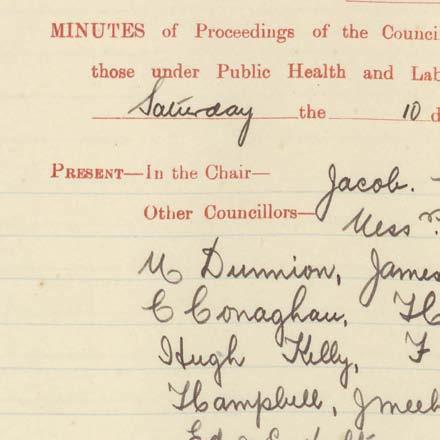 MINUTES of Proceedings of the Counci
those under Public Health and Lab
Saturday the 10 d
PRESENT—In the Chair— Jacob.
Other Councillors— Mess
M Dunnion, James
C Conaghan, H
Hugh Kelly, F
HCampbell, Jmeeh